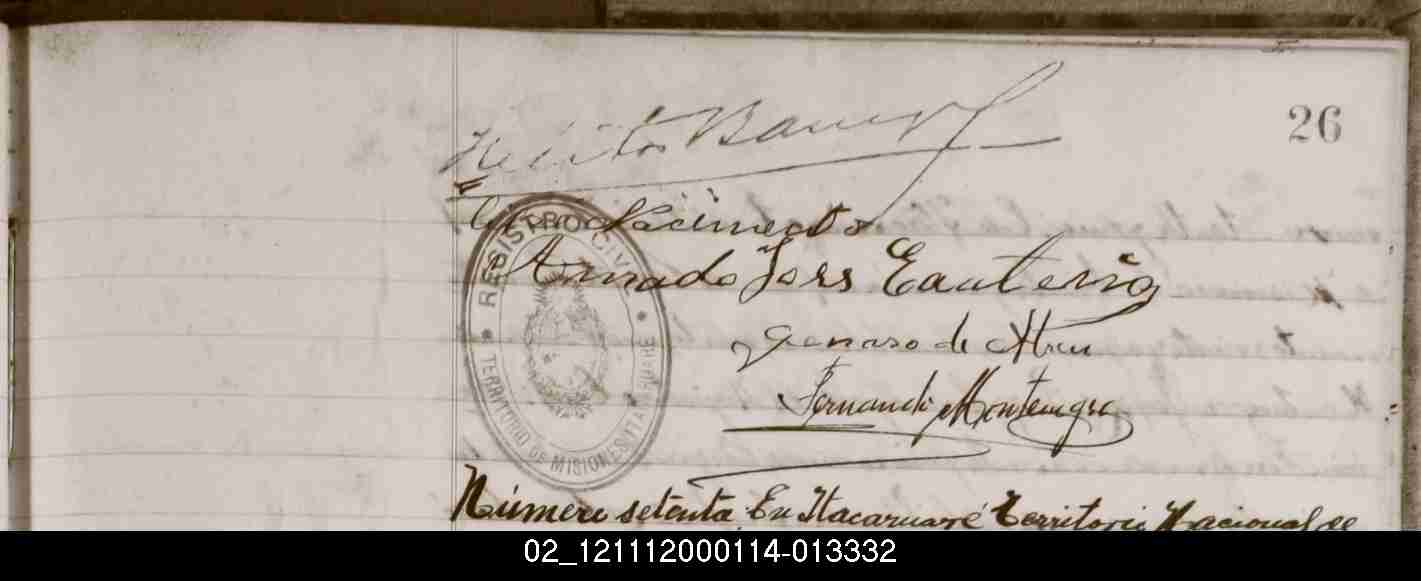 26
Nacimento
Amado José Eauterio
Genaro de Abreu
Fernando Montenegro
REGISTRO CIVIL
TERRITORIO DE MISIONES ITACARUARE
Número setenta En Itacaruaré Territorio Nacional de
02_121112000114-013332